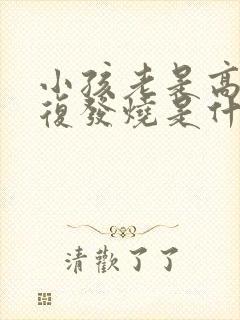 小孩老是高
復發燒是什
清歡了了